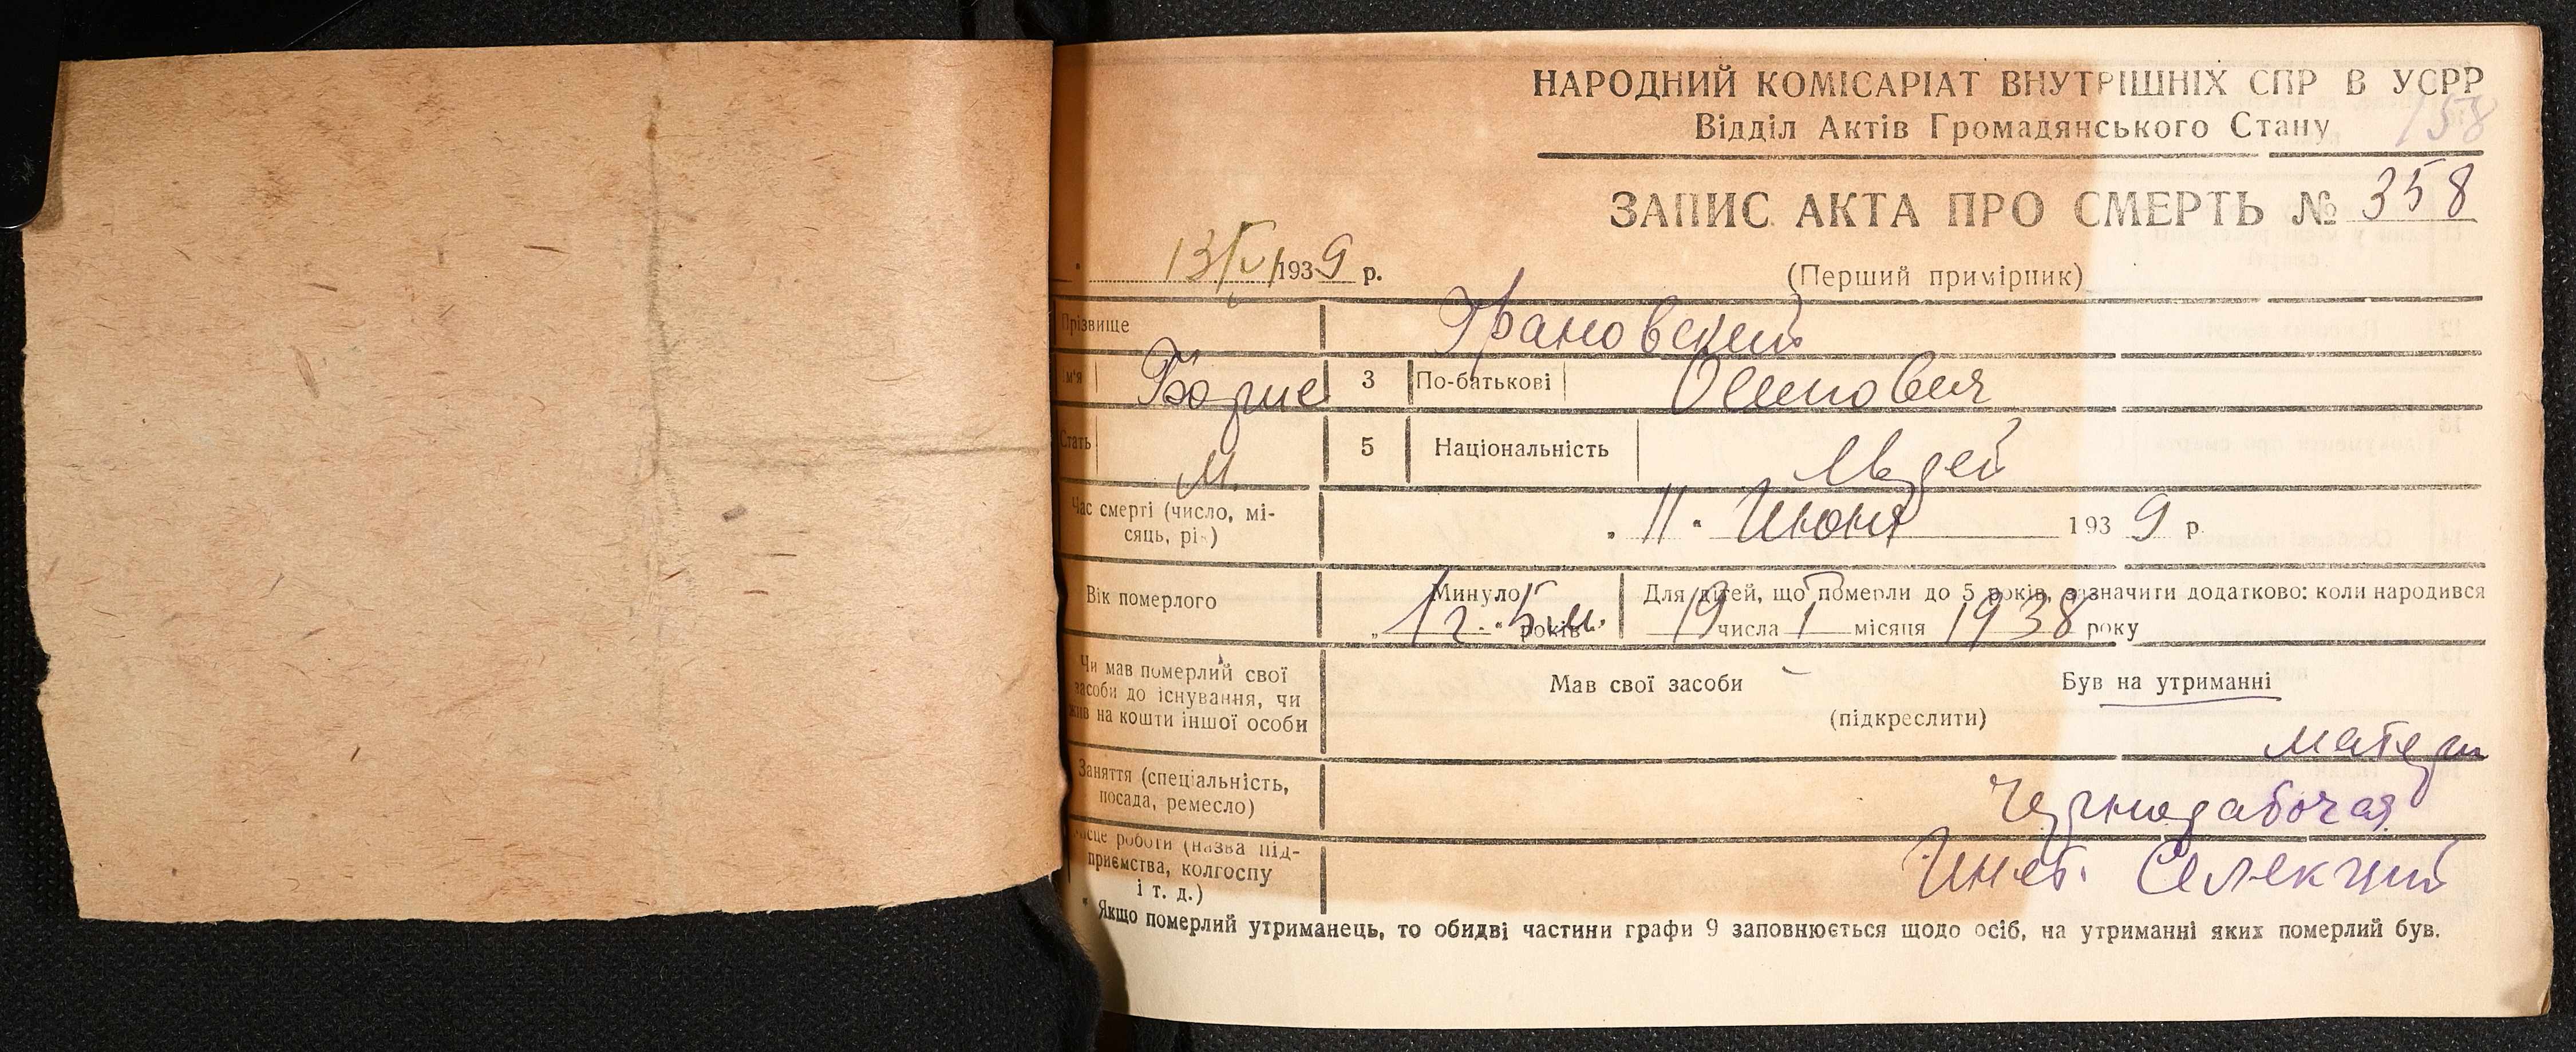 НАРОДНИЙ КОМІСАРІАТ ВНУТРІШНІХ СПР В УСРР
158
Відділ Актів Громадянського Стану
ЗАПИС АКТА ПРО СМЕРТЬ № 358
13/VI 1939 р.
(Перший примірник)
Прізвище Грановский
Ім'я Борис 3 По-батькові Осипович
Стать М. 5 Національність
Час смерті (число, мі-
сяць, рік) „ 11 " Июня 1939 р.
Вік померлого Минуло 1 г. 5 м. років Для дітей, що померли до 5 років, зазначити додатково: коли народився
19 числа I місяця 1938 року
Чи мав померлий свої
засоби до існування, чи
жив на кошти іншої особи
Мав свої засоби Був на утриманні
(підкреслити)
матери
Заняття (спеціальність,
посада, ремесло) чернорабочая
Місце роботи (назва під-
приємства, колгоспу
і т. д.) Инст. Селекции
* Якщо померлий утриманець, то обидві частини графи 9 заповнюється щодо осіб, на утриманні яких померлий був.